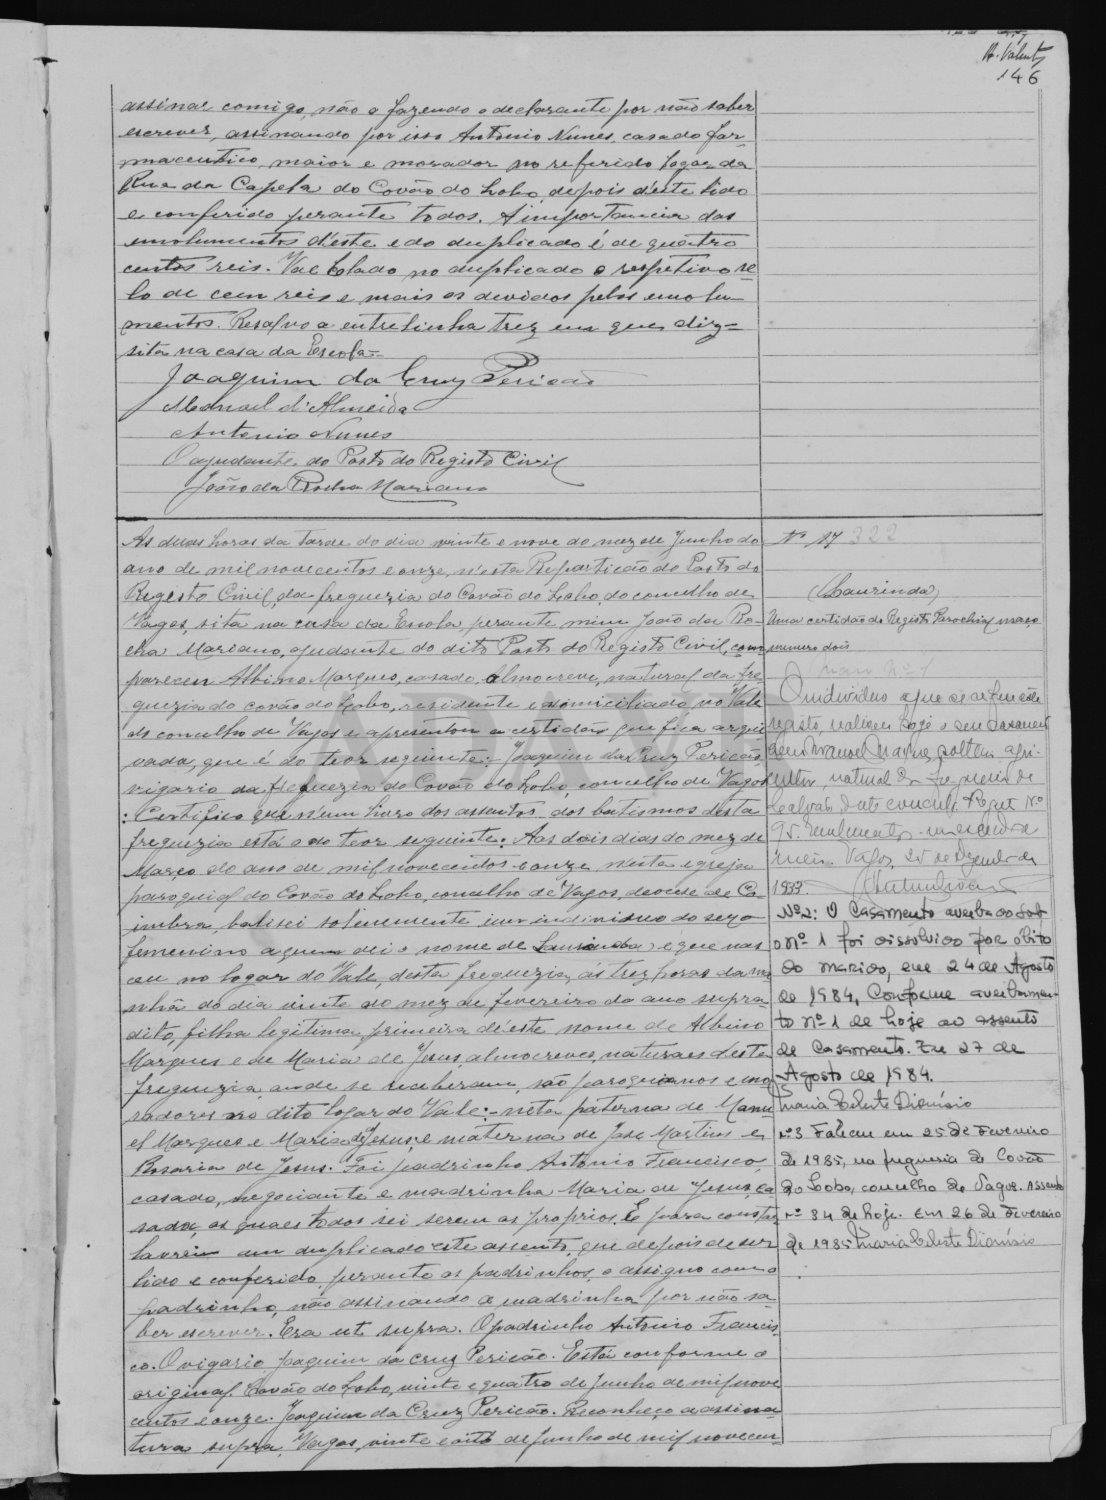 A. Valente
146
assinar comigo, não o fazendo o declarante por não saber
escrever, assinando por isso Antonio Nunes, casado far-
maceutico, maior e morador no referido logar da
Rua da Capela do Covão do Lobo, depois d'este lido
e conferido perante todos. A importancia dos
emolumentos d'este e do duplicado é de quatro
centos reis. Vae colado no duplicado o respetivo se
lo de cem reis e mais os devidos pelos emolu
mentos. Resalvo a entrelinha trez em que diz=
sita na casa da Escola=
Joaquim da Cruz Pericão
Manuel d'Almeida
Antonio Nunes
O ajudante do Posto do Registo Civil
João da Rocha Mariano
As duas horas da tarde do dia vinte e nove do mez de Junho do
ano de mil novecentos e onze, n'esta Repartição do Posto do
Registo Civil, da freguezia do Covão do Lobo, do concelho de
Vagos, sita na casa da Escola, perante mim João da Ro-
cha Mariano, ajudante do dito Posto do Registo Civil, com
pareceu Albino Marques, casado, almocreve, natural da fre
guezia do covão do Lobo, residente e domiciliado no Vale
do concelho de Vagos e apresentou a certidão que fica arqui
vada, que é do teor seguinte:- Joaquim da Cruz Pericão
vigario da freguezia do Covão do Lobo, concelho de Vagos
: Certifico que n'um livro dos assentos dos batismos desta
freguezia está o do teor seguinte: Aos dois dias do mez de
Março do ano de mil novecentos e onze, nesta egreja
paroquial do Covão do Lobo, concelho de Vagos, diocese de Co-
imbra, batisei solenemente um individuo do sexo
femenino a quem dei o nome de Laurinda e que nas
ceu no logar do Vale, desta freguezia, ás trez horas da ma
nhã do dia vinte do mez de fevereiro do ano supra
dito, filha legitima primeira d'este nome de Albino
Marques e de Maria de Jesus, almocreves, naturaes desta
freguezia, aonde se receberam, são paroquianos e mo
radores no dito logar do Vale:- neta paterna de Manu
el Marques e Maria de Jesus, e materna de José Martins e
Rosaria de Jesus. Foi padrinho Antonio Francisco,
casado, negociante e madrinha Maria de Jesus, ca
sada, os quaes todos sei serem os proprios. E para constar
lavrei em duplicado este assento, que depois de ser
lido e conferido perante os padrinhos, o assigno com o
padrinho, não assinando a madrinha por não sa
ber escrever. Era ut supra. O padrinho Antonio Francis
co. O vigario Joaquim da Cruz Pericão. Está conforme o
original. Covão do Lobo, vinte e quatro de Junho de mil nove
centos e onze. Joaquim da Cruz Pericão. Reconheço a assina
tura supra. Vagos, vinte e oito de Junho de mil novecen-
Nº 17 322
(Laurinda)
Uma certidão do Registo Parochial, maço
numero dois
O individuo a que se refere este
registo, realisou hoje o seu casamento
com Manuel solteiro, agri-
cultor, natural da freguesia de
Calvão, deste concelho. Registo Nº
95.
Vagos, 25 de Dezembro de
1933.
Nº 2: O Casamento averbado sob
o nº 1 foi dissolvido por óbito
do marido, em 24 de Agosto
de 1984, Conforme averbamen
to nº 1 de hoje ao assento
de Casamento. Em 27 de
Agosto de 1984.
Maria Celeste Dionísio
nº 3 Faleceu em 25 de Fevereiro
de 1985, na freguesia de Covão
do Lobo, concelho de Vagos. Assento
nº 34 de hoje. Em 26 de Fevereiro
de 1985 Maria Celeste Dionísio
ADAV